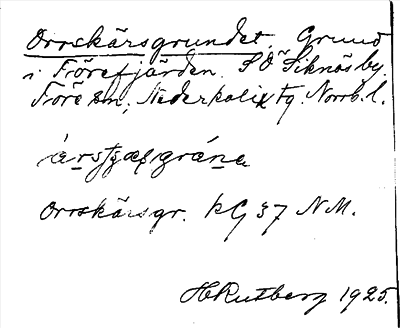 Orrskärsgrundet. Grund
i Törefjärden. SÖ Siknäs by.
Töre sn, Nederkalix tg. Norrb. l.
Orrskärsgr. kG 37 N.M.
H Rutberg 1925.